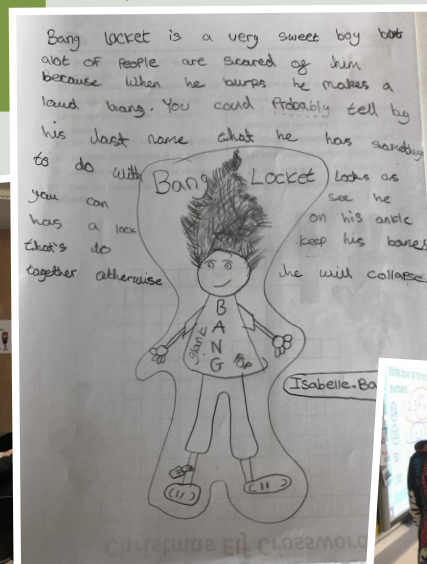 Bang locket is a very sweet boy but
alot of People are scared of him
because when he burps he makes a
loud bang. You could Probably tell by
his last name that he has something
to do with Bang Locket Locks as
you can see he
has a lock on his ankle
that's do keep his bones
together otherwise he will collapse.
B
A
N
G
Isabelle.Ba
Christmas Elf Crossword